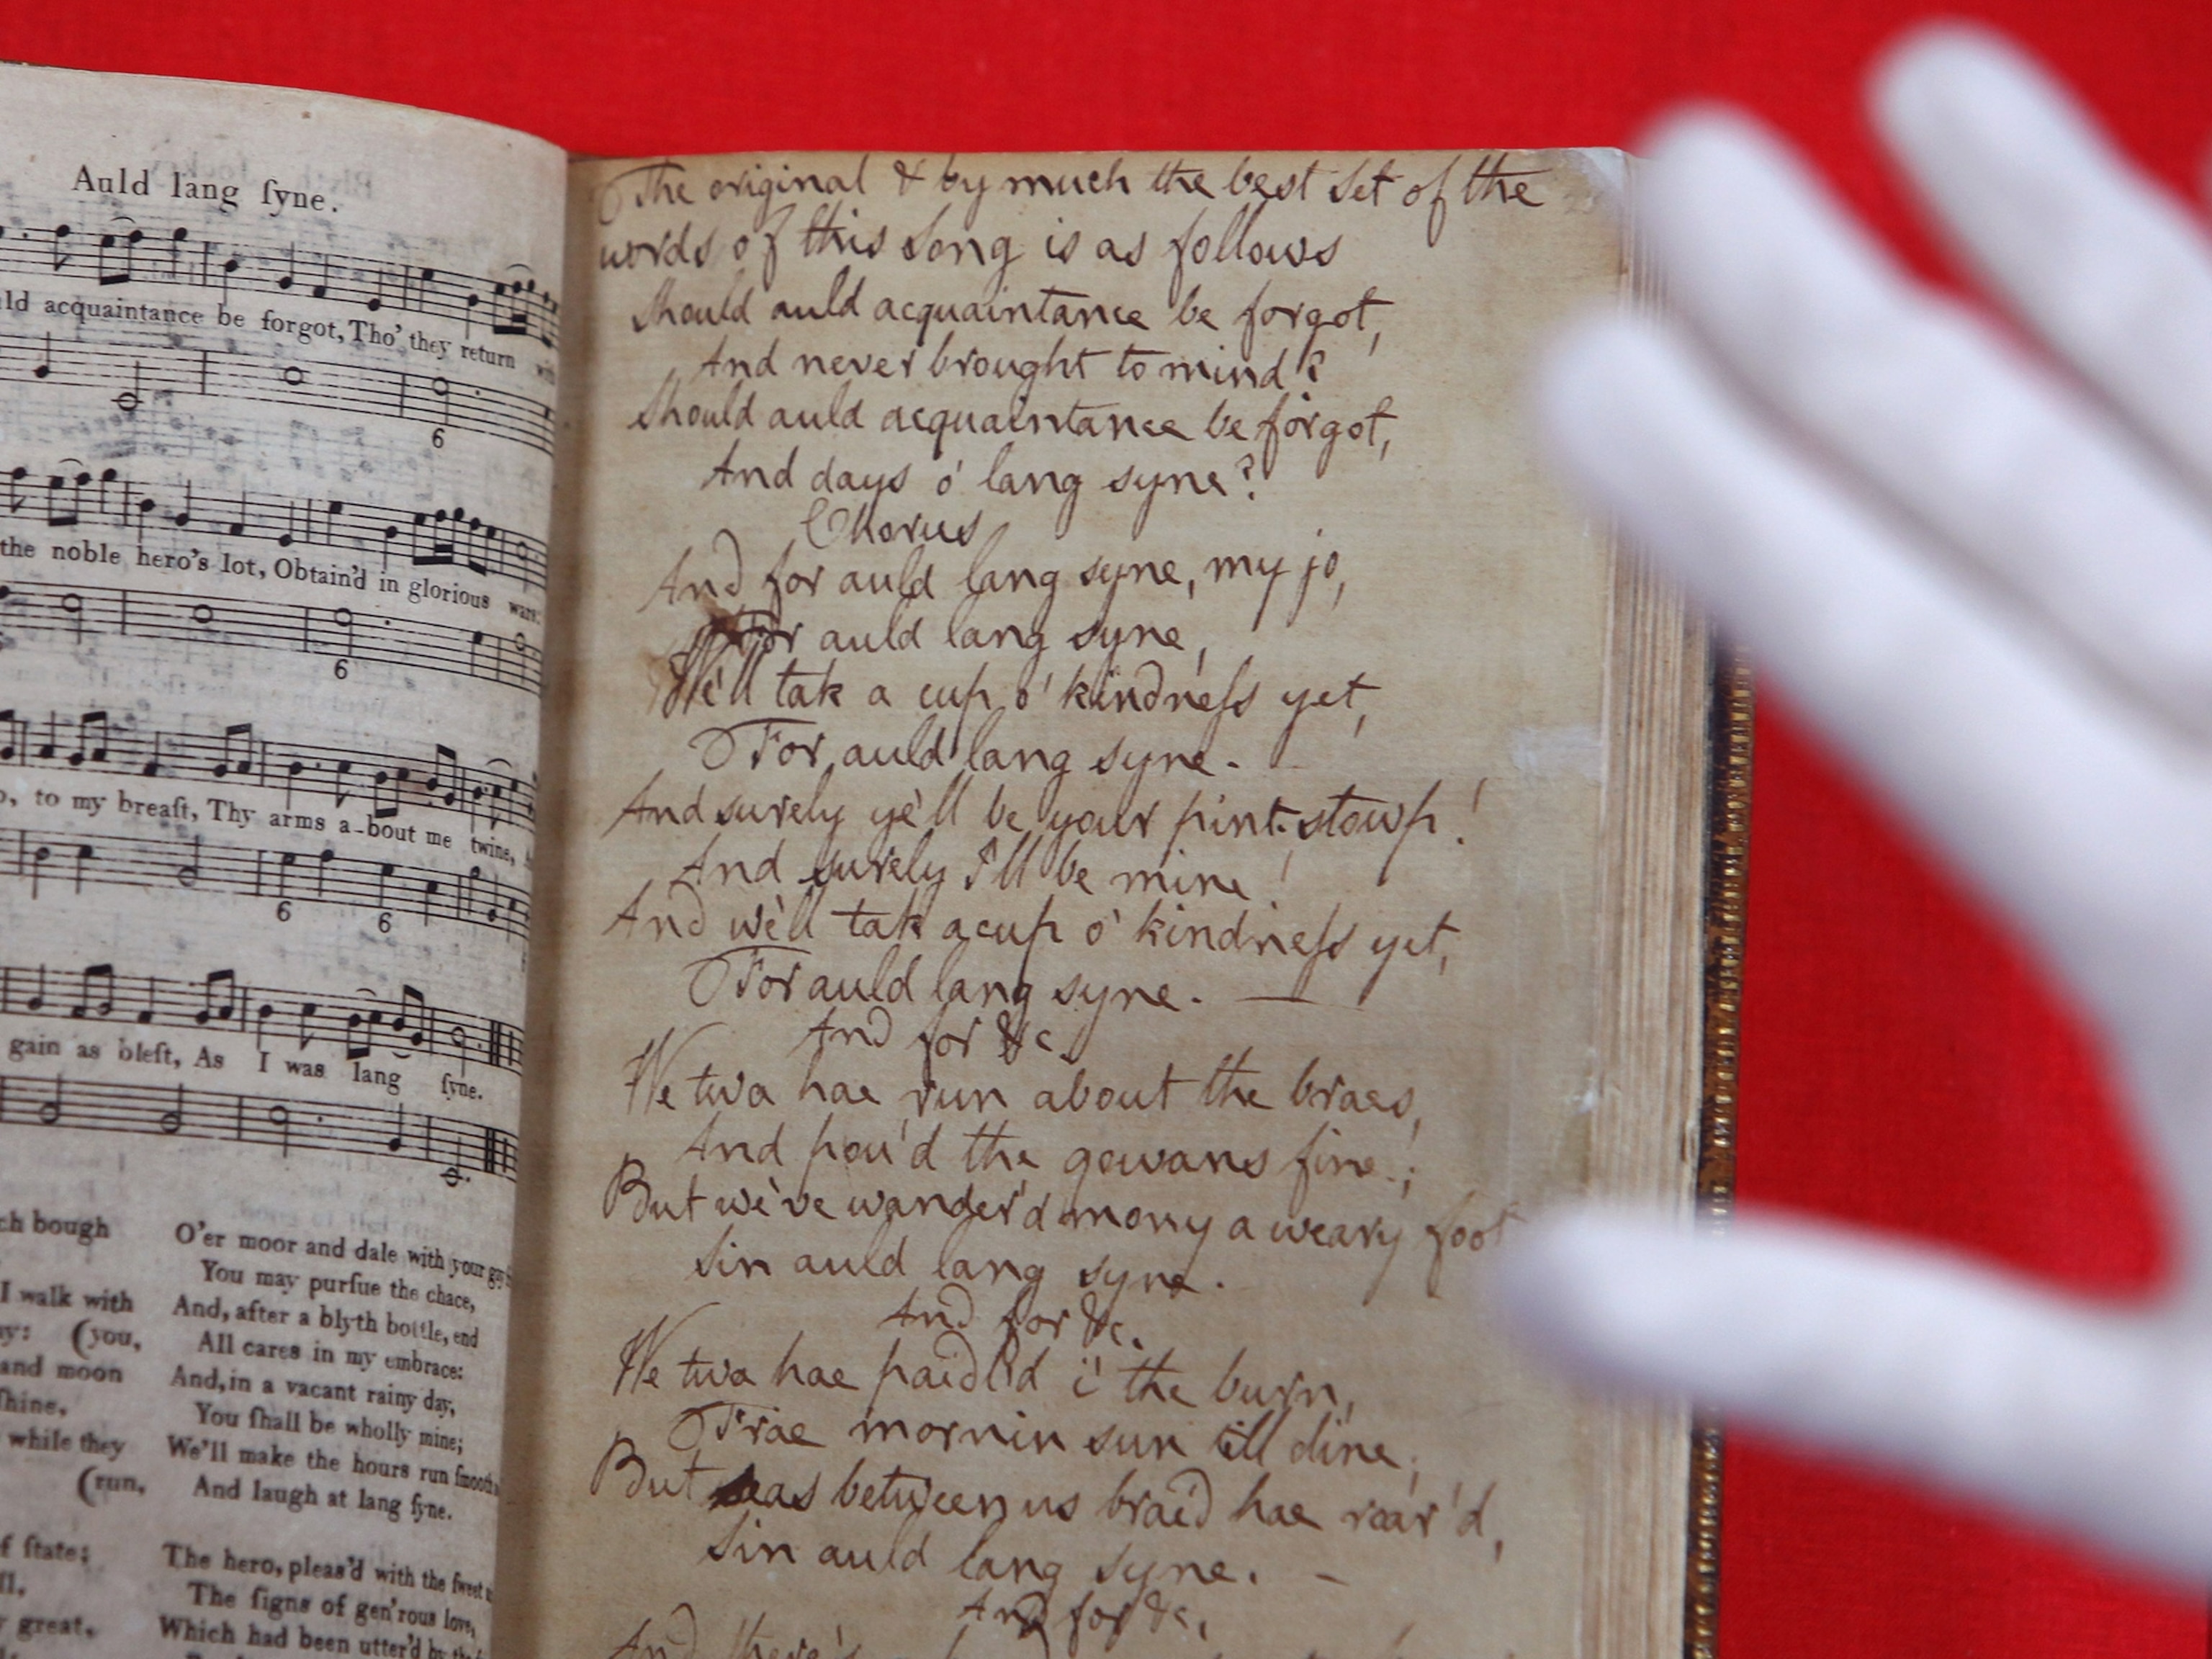 Auld lang ſyne.
acquaintance be forgot, Tho' they return
6
the noble hero's lot, Obtain'd in glorious wars:
6
to my breaſt, Thy arms a-bout me twine,
6 6
gain as bleſt, As I was lang ſyne.
ch bough
I walk with
(you,
and moon
ſhine,
while they
(run,
ſtate;
great,
O'er moor and dale with your
You may purſue the chace,
And, after a blyth bottle, end
All cares in my embrace:
And, in a vacant rainy day,
You ſhall be wholly mine;
We'll make the hours run ſmooth
And laugh at lang ſyne.
The hero, pleas'd with the ſweet
The ſigns of gen'rous love,
Which had been utter'd by
The original & by much the best set of the
words of this song is as follows
Should auld acquaintance be forgot,
And never brought to mind?
Should auld acquaintance be forgot,
And days o' lang syne?
Chorus
And for auld lang syne, my jo,
For auld lang syne,
We'll tak a cup o' kindneſs yet,
For auld lang syne.
And surely ye'll be your pint-stowp!
And surely I'll be mine!
And we'll tak a cup o' kindneſs yet,
For auld lang syne. —
And for &c.
We twa hae run about the braes,
And pou'd the gowans fine;
But we've wander'd mony a weary foot
Sin auld lang syne.
And for &c.
We twa hae paidl'd i' the burn,
Frae mornin sun till dine;
But seas between us braid hae roar'd,
Sin auld lang syne. —
And for &c.
And there's